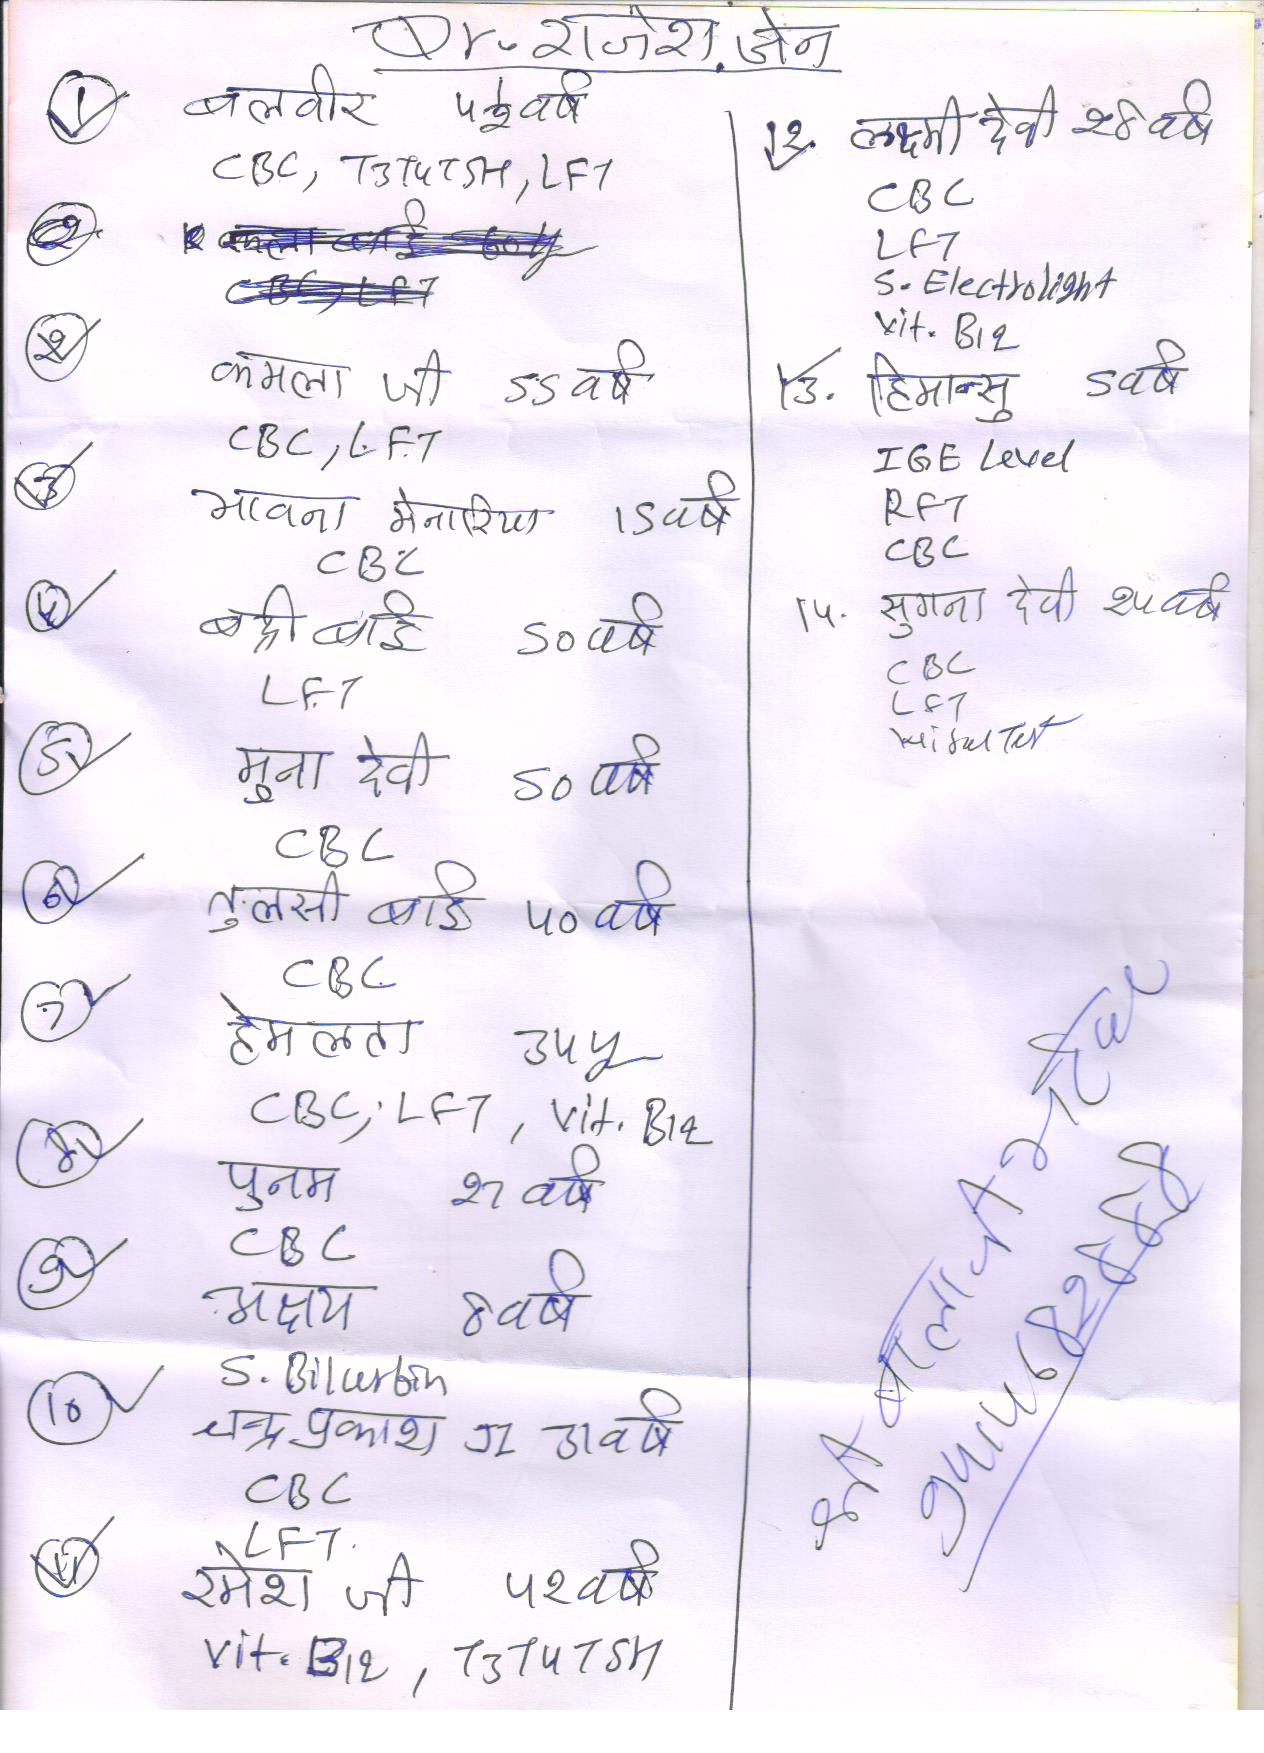 Dr. राजेश जेन
1 बलवीर 42 वर्ष
CBC, T3T4TSH, LFT
2 कमला बाई 60y
CBC, LFT
2 कमला जी 55 वर्ष
CBC, LFT
3 भावना मेनारिया 15 वर्ष
CBC
4 बद्री बाई 50 वर्ष
LFT
5 मुना देवी 50 वर्ष
CBC
6 तुलसी बाई 40 वर्ष
CBC
7 हेमलता 34y
CBC, LFT, Vit. B12
8 पुनम 27 वर्ष
CBC
9 अक्षय 8 वर्ष
S. Bilurbin
10 चन्द्र प्रकाश जी 31 वर्ष
CBC
LFT.
11 रमेश जी 42 वर्ष
Vit. B12, T3T4TSH
12. लक्ष्मी देवी 28 वर्ष
CBC
LFT
S. Electrolight
Vit. B12
13. हिमान्सु 5 वर्ष
IGE Level
RFT
CBC
14. सुगना देवी 24 वर्ष
CBC
LFT
Test
श्री बालाजी